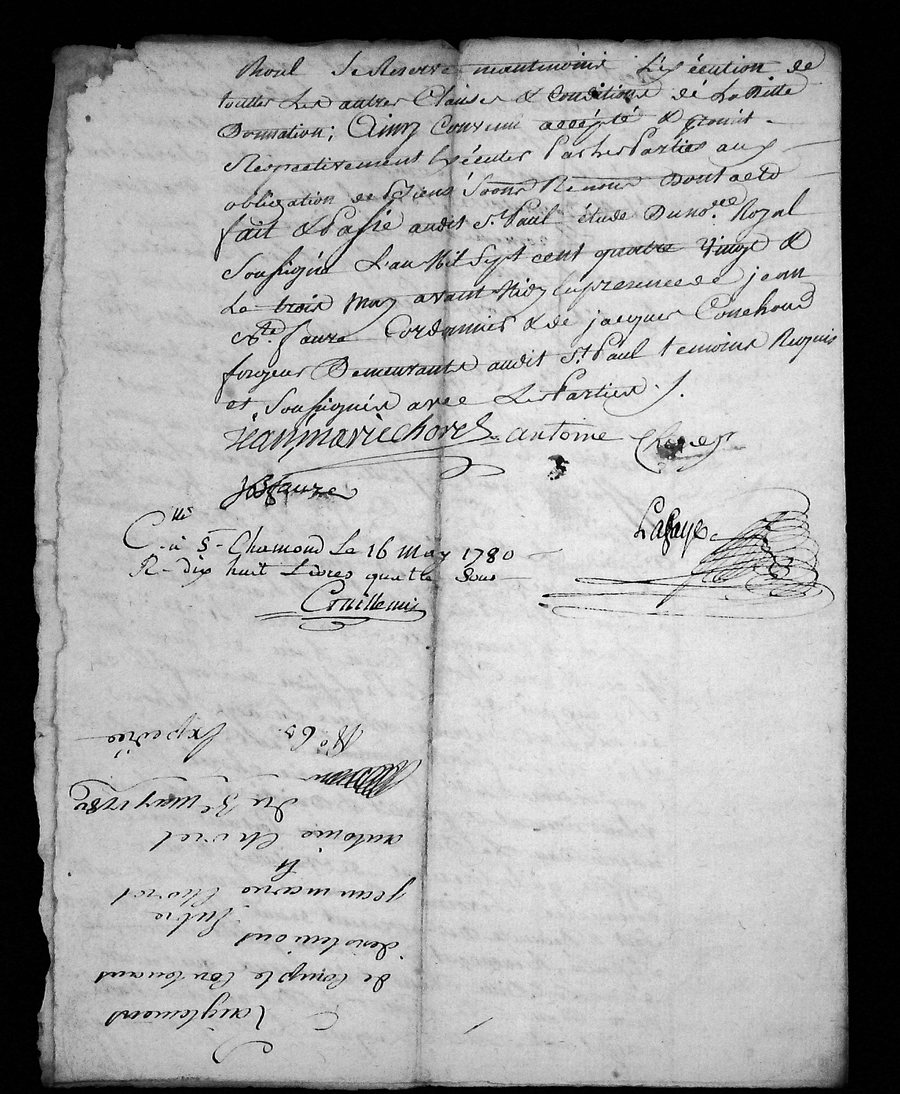 se Reserve neantmoins L'exécution de
toutes Les autres Clauses & Conditions dé La ditte
Donnation; Ainsy Convenu accépté & promit
Respectivement Exécuter Par les Parties aux
obligation de Biens Soons Renons Dont acte
fait & Passé audit St Paul étude Du nore Royal
Soussigné L'an Mil Sept cent quatre Vingt &
Le trois May avant Midy En presence de jean
Bte faure Cordonnier & de jacques Conchoud
forgeur Demeurants audit St Paul temoins Requis
et Soussignés avec Les Parties ./.
jeanmarie Chorel antoine Chorel
JBfaure
Lafaye
C. lle
à St Chamond Le 16 May 1780
R dix huit Livres quatre Sous
Couillemin
Reiglement
de Compte Contenant
dévolutions
Entre
jean marie Chorel
&
antoine Chorel
du 3e may 1780
No 65. Expedié